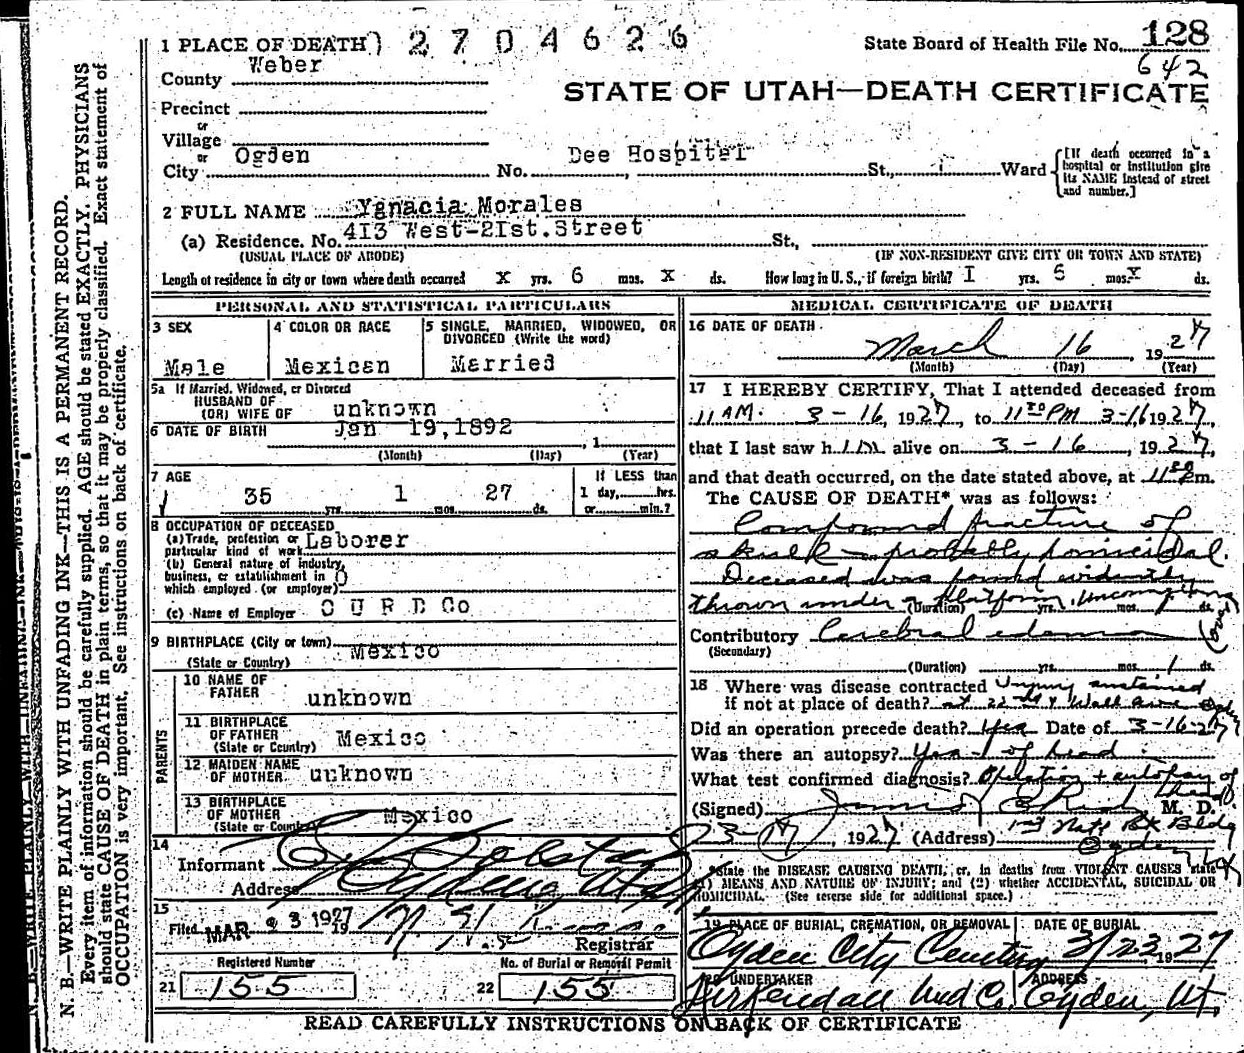 1 PLACE OF DEATH) 2704626
State Board of Health File No. 128
County Weber
642
STATE OF UTAH—DEATH CERTIFICATE
Precinct
or
Village
or
City Ogden No. Dee Hospital St., Ward
[If death occurred in a hospital or institution give its NAME instead of street and number.]
2 FULL NAME Ygnacia Morales
(a) Residence. No. 413 West-2Ist.Street St.,
(USUAL PLACE OF ABODE) (IF NON-RESIDENT GIVE CITY OR TOWN AND STATE)
Length of residence in city or town where death occurred x yrs. 6 mos. x ds. How long in U. S., if foreign birth? I yrs. 5 mos. x ds.
PERSONAL AND STATISTICAL PARTICULARS
3 SEX
Male
4 COLOR OR RACE
Mexican
5 SINGLE, MARRIED, WIDOWED, OR
DIVORCED (Write the word)
Married
5a If Married, Widowed, or Divorced
HUSBAND OF
(OR) WIFE OF unknown
6 DATE OF BIRTH Jan 19,1892 , 1
(Month) (Day) (Year)
7 AGE
35 yrs. 1 mos. 27 ds.
If LESS than
1 day, hrs.
or min.?
8 OCCUPATION OF DECEASED
(a) Trade, profession or
particular kind of work Laborer
(b) General nature of industry,
business, or establishment in
which employed (or employer)
(c) Name of Employer O U R D Co
9 BIRTHPLACE (City or town)
(State or Country) Mexico
PARENTS
10 NAME OF
FATHER unknown
11 BIRTHPLACE
OF FATHER
(State or Country) Mexico
12 MAIDEN NAME
OF MOTHER unknown
13 BIRTHPLACE
OF MOTHER
(State or Country) Mexico
14
Informant
Address Ogden Utah
15
Filed MAR 23 1927 19
Registrar
Registered Number
21 155
No. of Burial or Removal Permit
22 155
MEDICAL CERTIFICATE OF DEATH
16 DATE OF DEATH
March 16, 1927
(Month) (Day) (Year)
17 I HEREBY CERTIFY, That I attended deceased from
11 AM. 3-16, 1927, to 11 30 PM 3-16 1927,
that I last saw h im alive on 3-16, 1927,
and that death occurred, on the date stated above, at 11 30 P.m.
The CAUSE OF DEATH* was as follows:
Compound fracture of
skull — probably homicidal.
Deceased was found evidently
thrown under a platform. Unconscious
(Duration) yrs. mos. ds.
(over)
Contributory Cerebral edema
(Secondary)
(Duration) yrs. mos. 1 ds.
18 Where was disease contracted Injury sustained
if not at place of death? at 22nd & Wall Ave Ogden
Did an operation precede death? Yes Date of 3-16-27
Was there an autopsy? Yes - of head
What test confirmed diagnosis? Operation + autopsy of head
(Signed) M. D.
3-17, 1927 (Address) 1st Natl Bk Bldg
Ogden Ut
*State the DISEASE CAUSING DEATH, or, in deaths from VIOLENT CAUSES state
(1) MEANS AND NATURE OF INJURY; and (2) whether ACCIDENTAL, SUICIDAL OR
HOMICIDAL. (See reverse side for additional space.)
19 PLACE OF BURIAL, CREMATION, OR REMOVAL
Ogden City Cemetery
DATE OF BURIAL
3/23 1927
20 UNDERTAKER
Kirkendall Und Co.
ADDRESS
Ogden, Ut.
READ CAREFULLY INSTRUCTIONS ON BACK OF CERTIFICATE
N. B.—WRITE PLAINLY WITH UNFADING INK—THIS IS A PERMANENT RECORD.
Every item of information should be carefully supplied. AGE should be stated EXACTLY. PHYSICIANS
should state CAUSE OF DEATH in plain terms, so that it may be properly classified. Exact statement of
OCCUPATION is very important. See instructions on back of certificate.